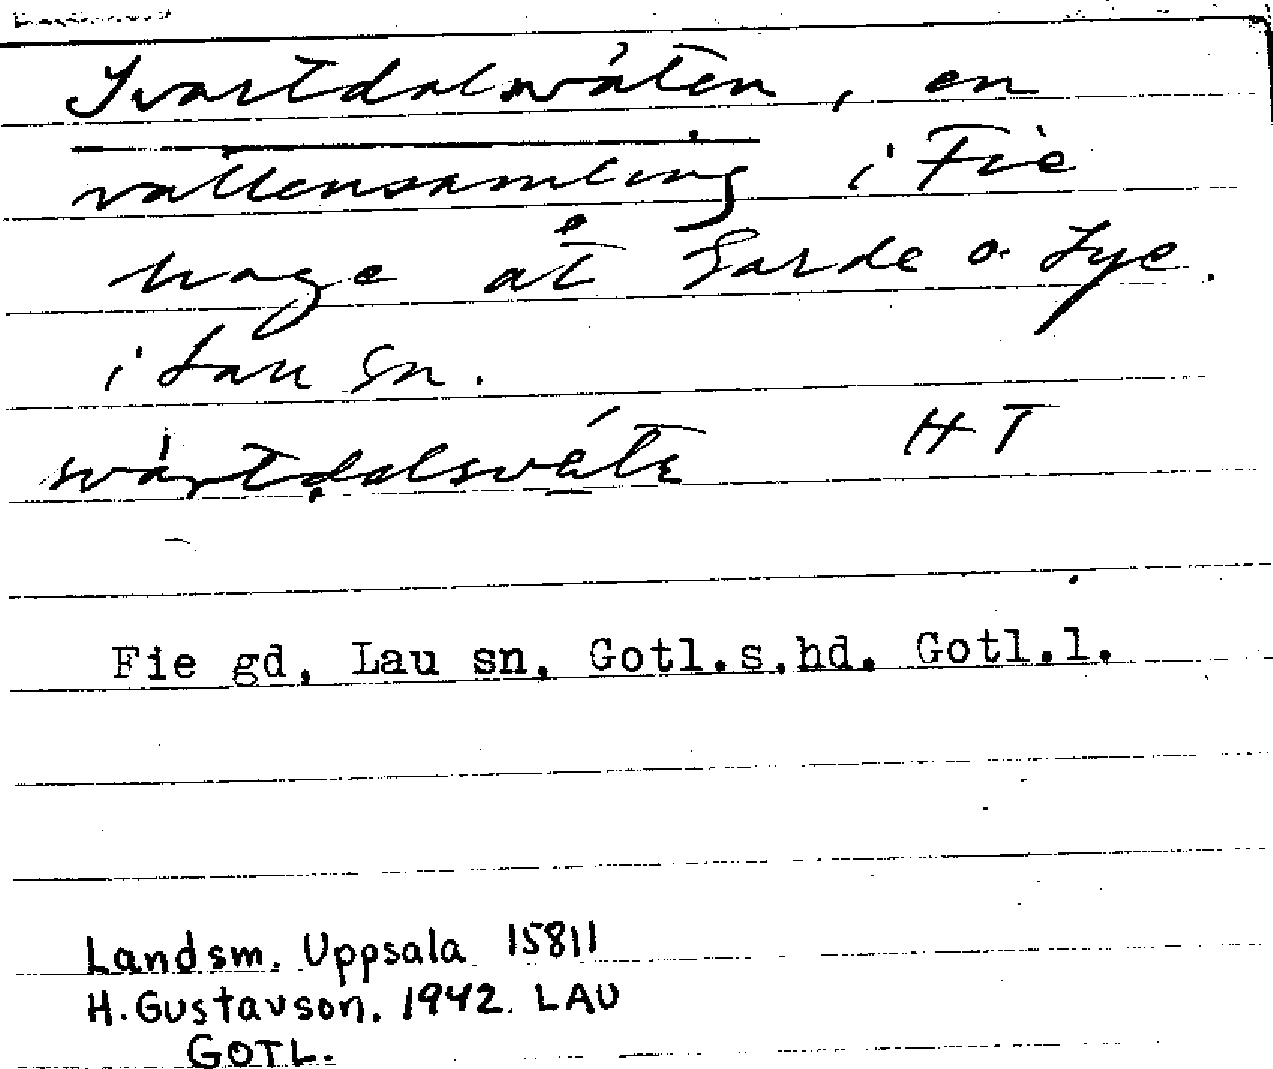 Svartdalsvåten, en
vattensamling i Fie
hage åt Garde o. Lye.
i Lau sn.
HT
Fie gd, Lau sn, Gotl.s.hd. Gotl.l.
Landsm. Uppsala 15811
H. Gustavson. 1942. LAU
GOTL.